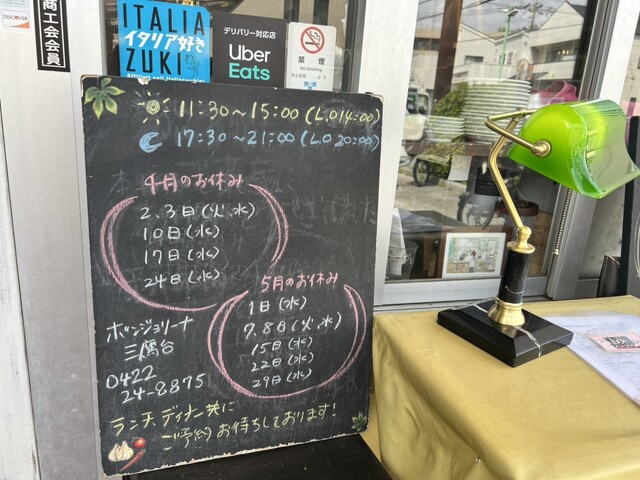 DISCOVER
商工会会員
ITALIA
イタリア好き
ZUKI
デリバリー対応店
Uber
Eats
禁煙
No Smoking
11:30～15:00(L.O14:00)
17:30～21:00(L.O 20:00)
4月のお休み
2.3日(火.水)
10日(水)
17日(水)
24日(水)
5月のお休み
1日(水)
7.8日(火.水)
15日(水)
22日(水)
29日(水)
ボンジョリーナ
三鷹台
0422
24-8875
ランチ、ディナー共に
ご予約お待ちしております!